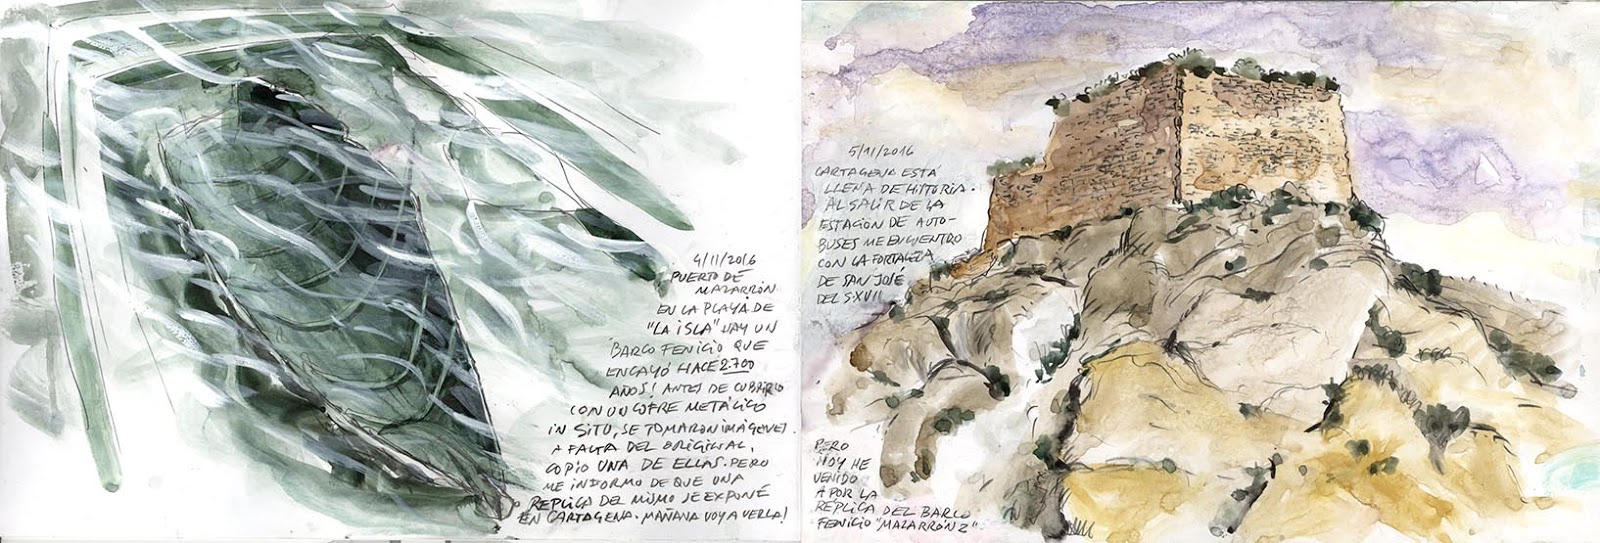 4/11/2016
PUERTO DE
MAZARRÓN
EN LA PLAYA DE
"LA ISLA" HAY UN
BARCO FENICIO QUE
ENCAYÓ HACE 2.700
AÑOS! ANTES DE CUBRIRLO
CON UN COFRE METÁLICO
IN SITU, SE TOMARON IMÁGENES.
A FALTA DEL ORIGINAL,
COPIO UNA DE ELLAS. PERO
ME INFORMO DE QUE UNA
REPLICA DEL MISMO SE EXPONE
EN CARTAGENA. MAÑANA VOY A VERLA!
5/11/2016
CARTAGENA ESTÁ
LLENA DE HISTORIA.
AL SALIR DE LA
ESTACIÓN DE AUTO-
BUSES ME ENCUENTRO
CON LA FORTALEZA
DE SAN JOSÉ
DEL S.XVII
PERO
HOY HE
VENIDO
A POR LA
RÉPLICA DEL BARCO
FENICIO "MAZARRÓN 2"